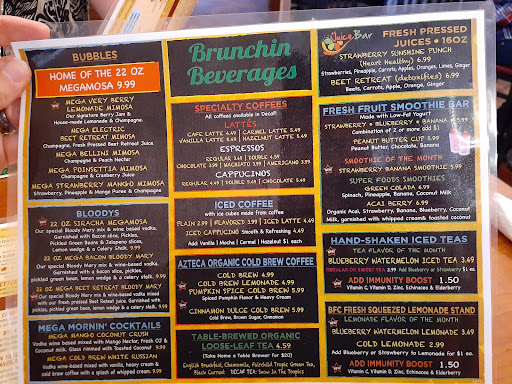 BUBBLES
HOME OF THE 22 OZ
MEGAMOSA 9.99
MEGA VERY BERRY
LEMONADE MIMOSA
Our signature Berry Jam &
House-made Lemonade & Champagne.
MEGA ELECTRIC
BEET RETREAT MIMOSA
Champagne, Fresh Pressed Beet Retreat Juice
MEGA BELLINI MIMOSA
Champagne & Peach Nectar
MEGA POINSETTIA MIMOSA
Champagne & Cranberry Juice
MEGA STRAWBERRY MANGO MIMOSA
Strawberry, Pineapple & Mango Puree & Champagne
BLOODYS
22 OZ SIRACHA MEGAMOSA
Our special Bloody Mary mix & wine based vodka.
Garnished with Bacon slice, Pickles,
Pickled Green Beans & Jalapeno slices,
Lemon wedge & a Celery Stalk. 9.99
22 OZ MEGA BACON BLOODY MARY
Our special Bloody Mary mix & wine-based vodka,
garnished with a bacon slice, pickles,
pickled green bean, lemon wedge & a celery stalk. 9.99
22 OZ MEGA BEET RETREAT BLOODY MARY
Our special Bloody Mary mix & wine-based vodka mixed
with our fresh pressed Beet Retreat Juice. Garnished with pickles,
pickled green beans, lemon wedge & a celery stalk. 9.99
MEGA MORNIN' COCKTAILS
MEGA MANGO COCONUT CRUSH
Vodka wine based mixed with Mango Nectar, Fresh OJ &
Coconut milk. Glass rimmed with Toasted Coconut 9.99
MEGA COLD BREW WHITE RUSSIAN
Vodka wine-based mixed with vanilla, heavy cream &
cold brew coffee with a splash of whipped cream. 9.99
Brunchin
Beverages
SPECIALTY COFFEES
All coffees available in Decaff
LATTES
CAFE LATTE 4.49 | CARMEL LATTE 5.49
VANILLA LATTE 5.49 | HAZELNUT LATTE 5.49
ESPRESSOS
REGULAR 3.49 | DOUBLE 4.99
CHOCOLATE 3.99 | MACHIATO 3.99 | AMERICANO 3.99
CAPPUCINOS
REGULAR 4.49 | DOUBLE 5.49 | CHOCOLATE 5.49
ICED COFFEE
with ice cubes made from coffee
PLAIN 3.99 | FLAVORED 3.99 | ICED LATTE 4.49
ICED CAPPUCINO Smooth & Refreshing 4.49
Add: Vanilla | Mocha | Carmel | Hazelnut $1 each
AZTECA ORGANIC COLD BREW COFFEE
COLD BREW 4.99
COLD BREW LEMONADE 4.99
PUMPKIN SPICE COLD BREW 5.99
Spiced Pumpkin Flavor & Heavy Cream
CINNAMON DULCE COLD BREW 5.99
Cold Brew, Brown Sugar, Cinnamon
TABLE-BREWED ORGANIC
LOOSE-LEAF TEA 4.59
(Take Home a Table Brewer for $20)
English Breakfast, Chamomile, Patchful Tropic Green Tea,
Black Currant DECAF TEA: Snow In The Tropics
Juice Bar
FRESH PRESSED
JUICES • 16OZ
STRAWBERRY SUNSHINE PUNCH
(Heart Healthy) 6.99
Strawberries, Pineapple, Carrots, Apples, Oranges, Limes, Ginger
BEET RETREAT (detoxifies) 6.99
Beets, Carrots, Apples, Orange, Ginger
FRESH FRUIT SMOOTHIE BAR
Made with Low-Fat Yogurt
STRAWBERRY & BLUEBERRY & BANANA 4.99
Combination of 2, or more add $1
PEANUT BUTTER CUP 5.99
Peanut Butter, Chocolate, Banana
SMOOTHIE OF THE MONTH
STRAWBERRY BANANA SMOOTHIE 5.99
SUPER FOODS SMOOTHIES
GREEN COLADA 6.99
Spinach, Pineapple, Banana, Coconut Milk
ACAI BERRY 6.99
Organic Acai, Strawberry, Banana, Blueberry, Coconut
Milk, garnished with whipped cream & toasted coconut
HAND-SHAKEN ICED TEAS
TEA FLAVOR OF THE MONTH
BLUEBERRY WATERMELON ICED TEA 3.49
REGULAR OR SWEET TEA 2.99 Add Blueberry or Strawberry $1 ea.
ADD IMMUNITY BOOST 1.50
Vitamin C, Vitamin D, Zinc, Echinacea & Elderberry
BFC FRESH SQUEEZED LEMONADE STAND
LEMONADE FLAVOR OF THE MONTH
BLUEBERRY WATERMELON LEMONADE 3.49
COLD LEMONADE 2.99
Add Blueberry or Strawberry to Lemonade for $1 ea.
ADD IMMUNITY BOOST 1.50
Vitamin C, Vitamin D, Zinc, Echinacea & Elderberry